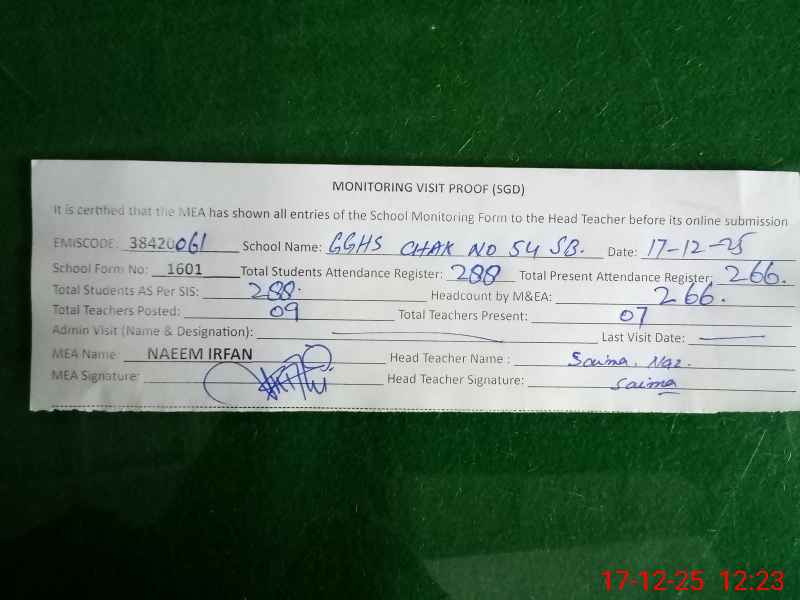 MONITORING VISIT PROOF (SGD)
It is certified that the MEA has shown all entries of the School Monitoring Form to the Head Teacher before its online submission
EMISCODE: 38420061 School Name: GGHS CHAK NO 54 SB. Date: 17-12-25
School Form No: 1601 Total Students Attendance Register: 288 Total Present Attendance Register: 266.
Total Students AS Per SIS: 288. Headcount by M&EA: 266.
Total Teachers Posted: 09 Total Teachers Present: 07
Admin Visit (Name & Designation): Last Visit Date:
MEA Name: NAEEM IRFAN Head Teacher Name : Saima. Naz.
MEA Signature: Head Teacher Signature: Saima
17-12-25 12:23